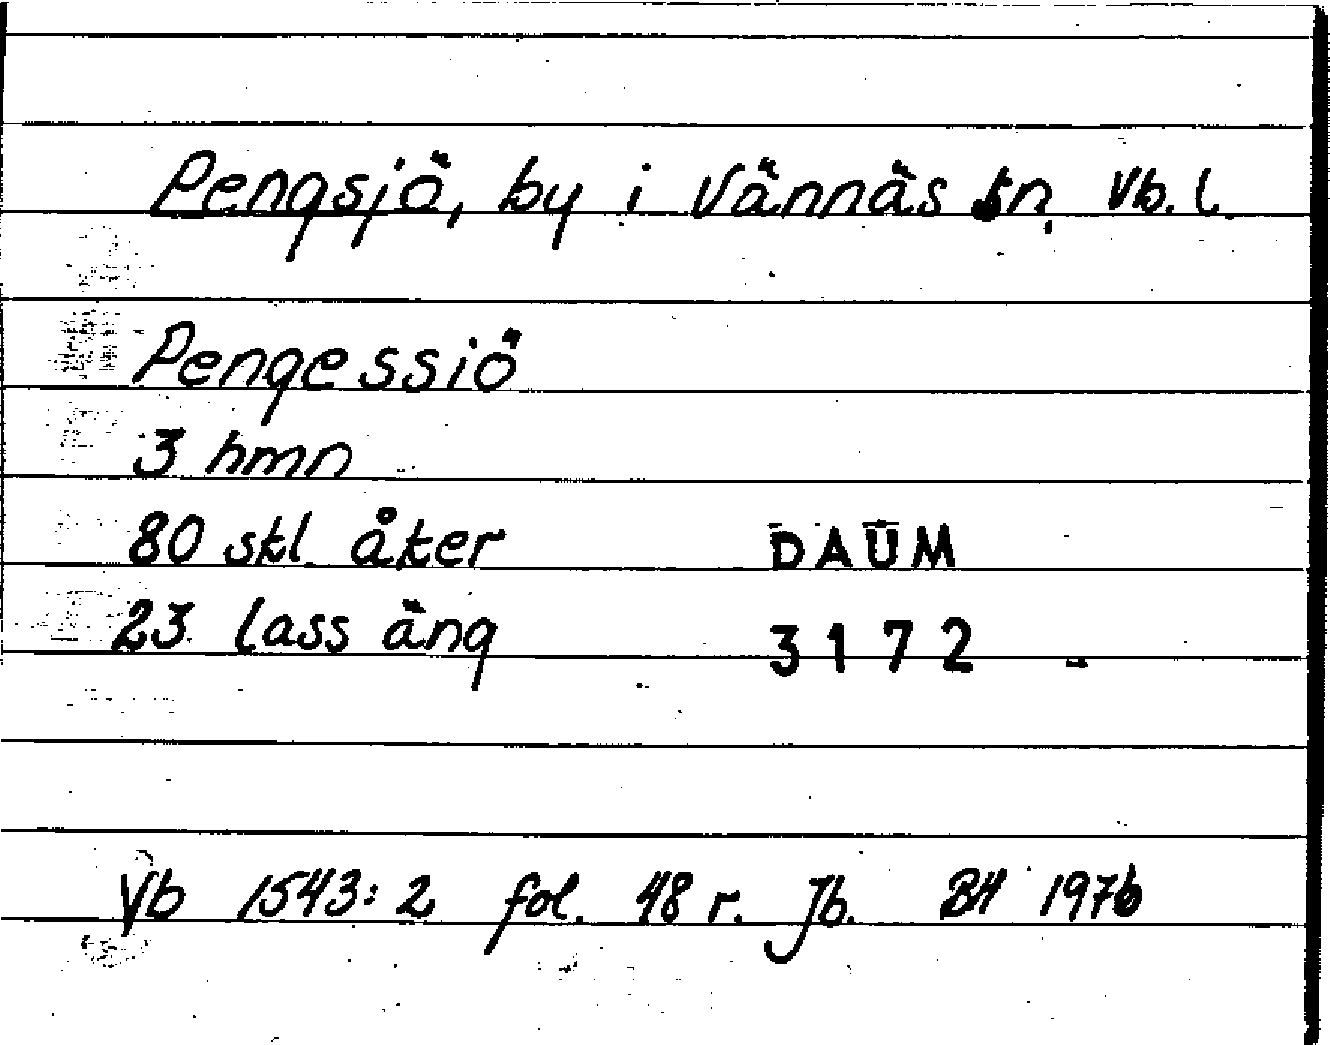 Pengsjö, by i Vännäs sn, Vb. l.
Pengessiö
3 hmn
80 skl. åker
DAUM
23 lass äng
3172
Vb 1543:2 fol. 48 r. Jb. BH 1976